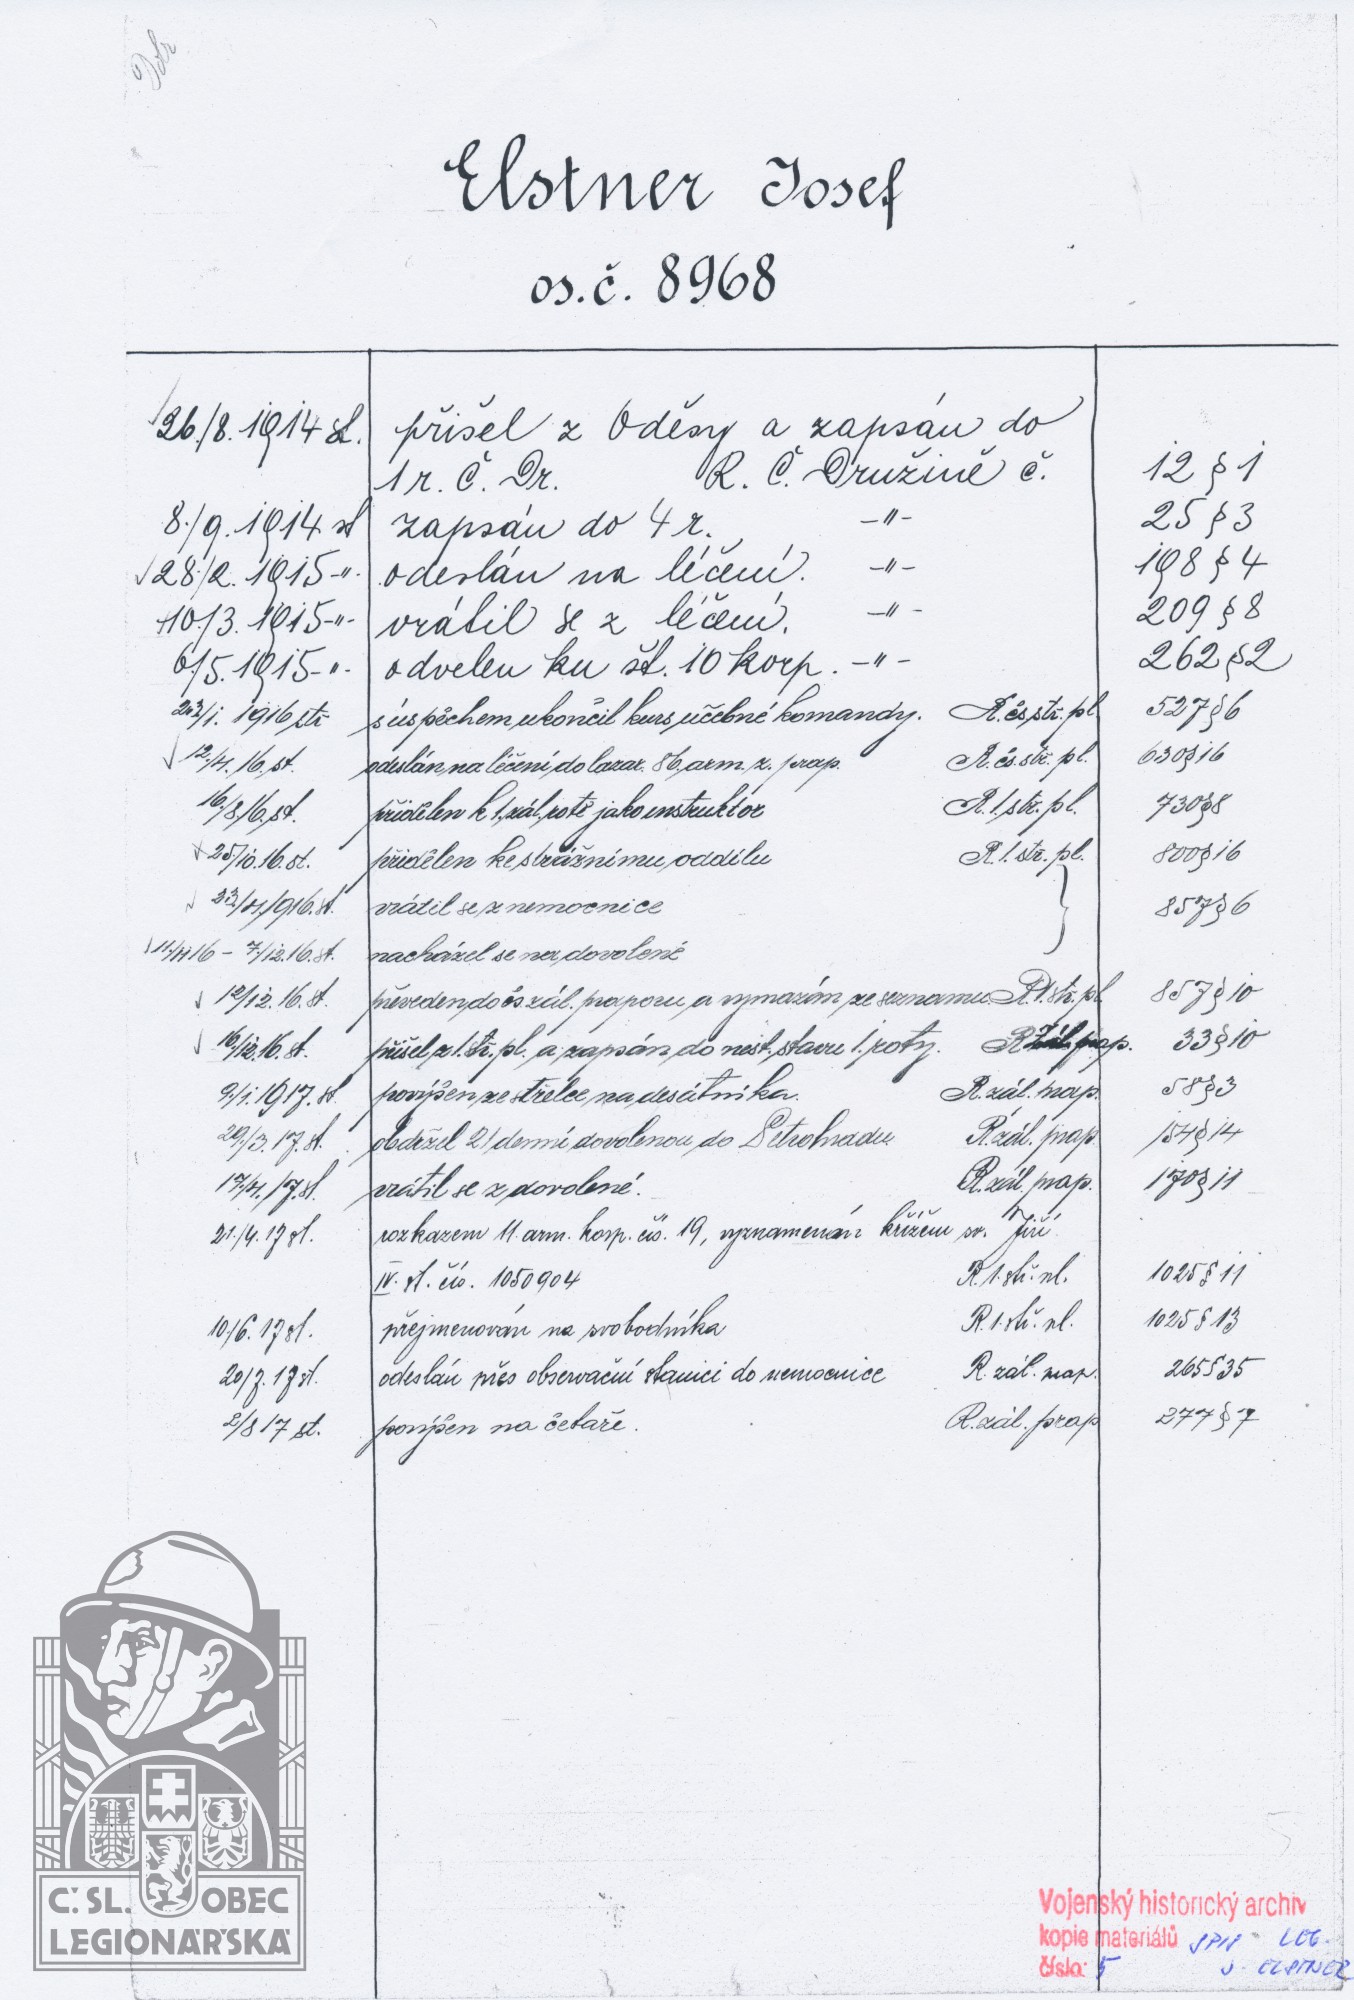 Elstner Josef
os.č. 8968
26./8. 1914 st. přišel z Oděsy a zapsán do
1 r. Č. Dr. R. Č. Družině č. 12 § 1
8./9. 1914 st zapsán do 4 r. -"- 25 § 3
28./2. 1915 -"- odeslán na léčení. -"- 198 § 4
10./3. 1915 -"- vrátil se z léčení. -"- 209 § 8
6./5. 1915 -"- odvelen ku št. 10 korp. -"- 262 § 2
23/1. 1916 str s úspěchem ukončil kurs učebné komandy. R. čs. stř. pl. 527 § 6
12./4. 16. st. odeslán na léčení do lazar. 86. arm. z. prap. R. čs. stř. pl. 630 § 16
16/8. 16. st. přidělen k 1. zál. rotě jako instruktor R. 1. stř. pl. 730 § 8
25/10. 16. st. přidělen ke strážnímu oddílu R. 1. stř. pl. 800 § 16
23/11. 1916. st. vrátil se z nemocnice 857 § 6
11/11 16 - 7/12. 16. st. nacházel se na dovolené
12/12. 16. st. převeden do čs zál. praporu a vymazán ze seznamu R. 1. stř. pl. 857 § 10
16/12. 16. st. přišel z 1. stř. pl. a zapsán do nest. stavu 1. roty. R. zál. prap. 33 § 10
9/1. 1917. st. povýšen ze střelce na desátníka. R. zál. prap. 58 § 3
29./3. 17. st. obdržel 21 denní dovolenou do Petrohradu. R. zál. prap. 154 § 14
17/4. 17. st. vrátil se z dovolené. R. zál. prap. 170 § 11
21./4. 17 st. rozkazem 11. arm. korp. čís. 19, vyznamenán křížem sv. Jiří
IV. st. čís. 1050904 R. 1. stř. pl. 1025 § 11
10/6. 17 st. přejmenován na svobodníka R. 1. stř. pl. 1025 § 13
20/7. 17 st. odeslán přes observační stanici do nemocnice R. zál. prap. 265 § 35
2/8 17 st. povýšen na četaře. R. zál. prap 277 § 7
Č. SL. OBEC
LEGIONÁŘSKÁ
Vojenský historický archiv
kopie materiálů SPIS LEG.
číslo: 5 J. ELSTNER